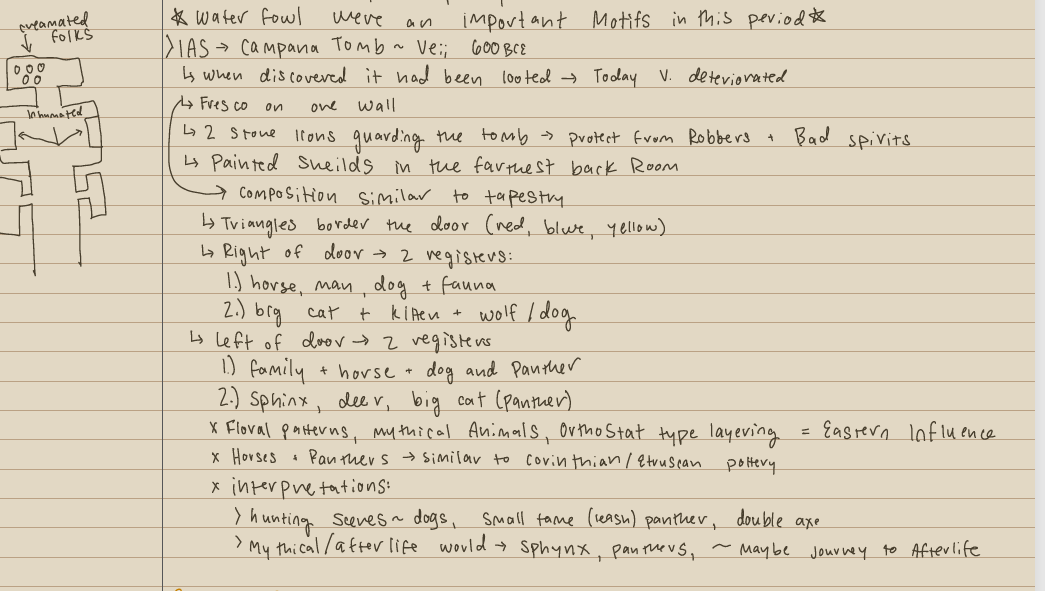 creamated
folks
Inhumated
☆ Water fowl were an important Motifs in this period ☆
> IAS → Campana Tomb ~ Veii 600 BCE
↳ when discovered it had been looted → Today v. deteriorated
↳ Fresco on one wall
↳ 2 Stone lions guarding the tomb → protect from Robbers + Bad spirits
↳ Painted Sheilds in the farthest back Room
→ composition similar to tapestry
↳ Triangles border the door (red, blue, yellow)
↳ Right of door → 2 registers:
1.) horse, man, dog + fauna
2.) big cat + kitten + wolf/dog
↳ left of door → 2 registers
1.) family + horse + dog and Panther
2.) Sphinx, deer, big cat (panther)
x Floral patterns, mythical Animals, Orthostat type layering = Eastern Influence
x Horses + Panthers → similar to corinthian/Etruscan pottery
x interpretations:
> hunting scenes ~ dogs, small tame (leash) panther, double axe
> Mythical/afterlife world → sphynx, panthers, ~ Maybe journey to Afterlife